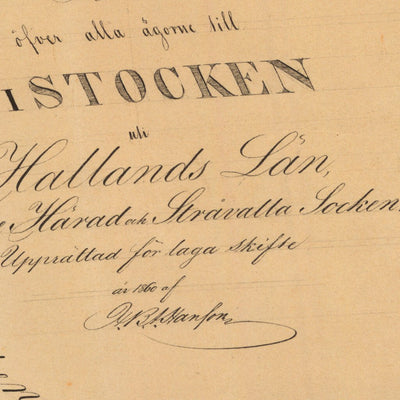 öfver alla ägorne till
ISTOCKEN
uti
Hallands Län,
Härad och Stråvalla Socken
Upprättad för laga skifte
år 1860 af